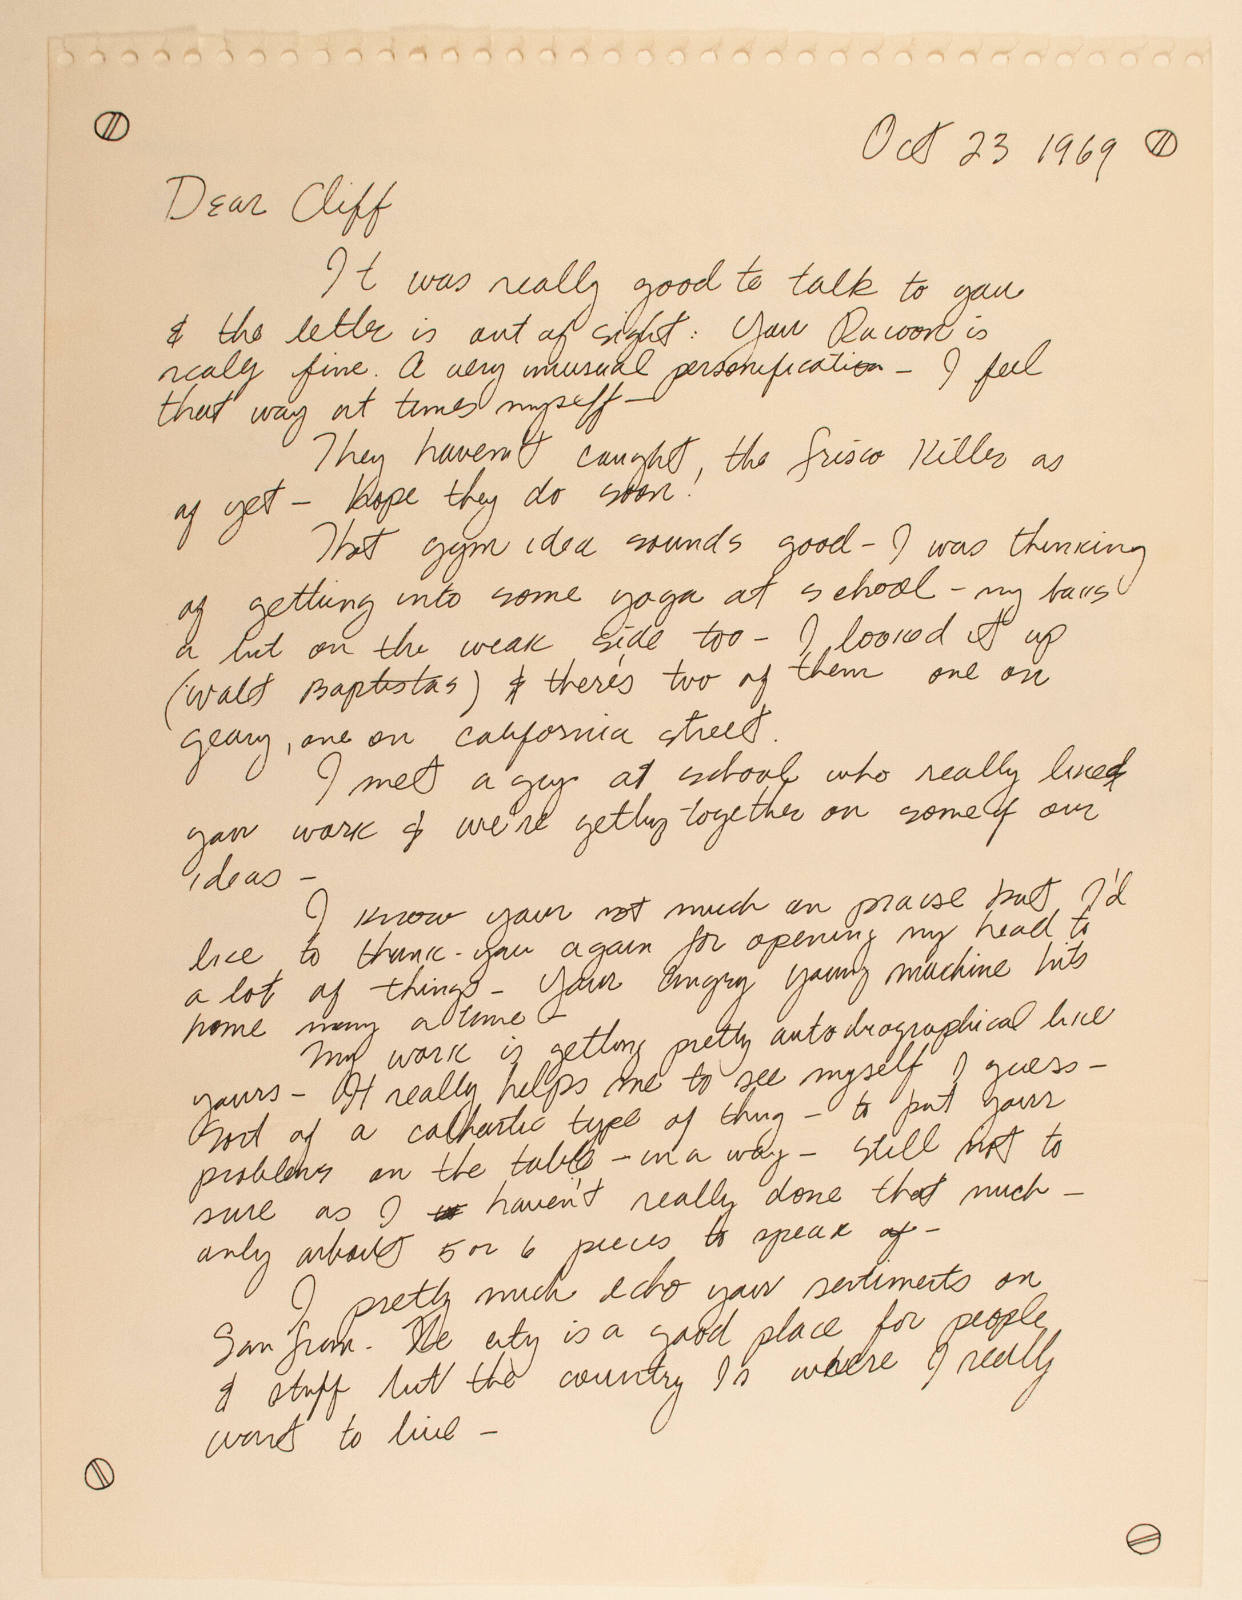 Oct 23 1969
Dear Cliff
It was really good to talk to you
& the letter is out of sight: Your Racoon is
realy fine. A very unusual personification – I feel
that way at times myself –
They haven't caught, the Frisco Killer as
of yet – hope they do soon!
That gym idea sounds good – I was thinking
of getting into some yoga at school – my
a bit on the weak side too – I looked it up
(Walt Baptistas) & there's two of them one on
geary, one on california street.
I met a guy at school who really liked
your work & we're getting together on some of our
ideas –
I know your not much on praise but I'd
like to thank-you again for opening my head to
a lot of things – Your angry young machine hits
home many a time –
My work is getting pretty autobiographical like
yours – It really helps me to see myself I guess –
sort of a cathartic type of thing – to put your
problems on the table – in a way – still not to
sure as I haven't really done that much –
only about 5 or 6 pieces to speak of –
I pretty much echo your sentiments on
San Fran. The city is a good place for people
& stuff but the country Is where I really
want to live –